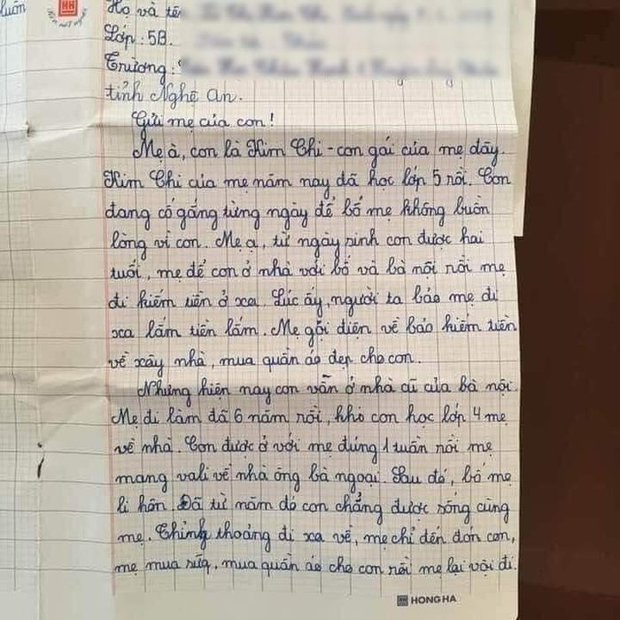 luôn
HH
Họ và tên
Lớp: 5B.
Trường:
tỉnh Nghệ An.
Gửi mẹ của con!
Mẹ à, con là Kim Chi - con gái của mẹ đây.
Kim Chi của mẹ năm nay đã học lớp 5 rồi. Con
đang cố gắng từng ngày để bố mẹ không buồn
lòng vì con. Mẹ ạ, từ ngày sinh con được hai
tuổi, mẹ để con ở nhà với bố và bà nội rồi mẹ
đi kiếm tiền ở xa. Lúc ấy, người ta bảo mẹ đi
xa lắm tiền lắm. Mẹ gọi điện về bảo kiếm tiền
về xây nhà, mua quần áo đẹp cho con.
Nhưng hiện nay con vẫn ở nhà cũ của bà nội.
Mẹ đi làm đã 6 năm rồi, khi con học lớp 4 mẹ
về nhà. Con được ở với mẹ đúng 1 tuần rồi mẹ
mang vali về nhà ông bà ngoại. Sau đó, bố mẹ
li hôn. Đã từ năm đó con chẳng được sống cùng
mẹ. Thỉnh thoảng đi xa về, mẹ chỉ đến đón con,
mẹ mua sữa, mua quần áo cho con rồi mẹ lại vội đi.
HH HONG HA